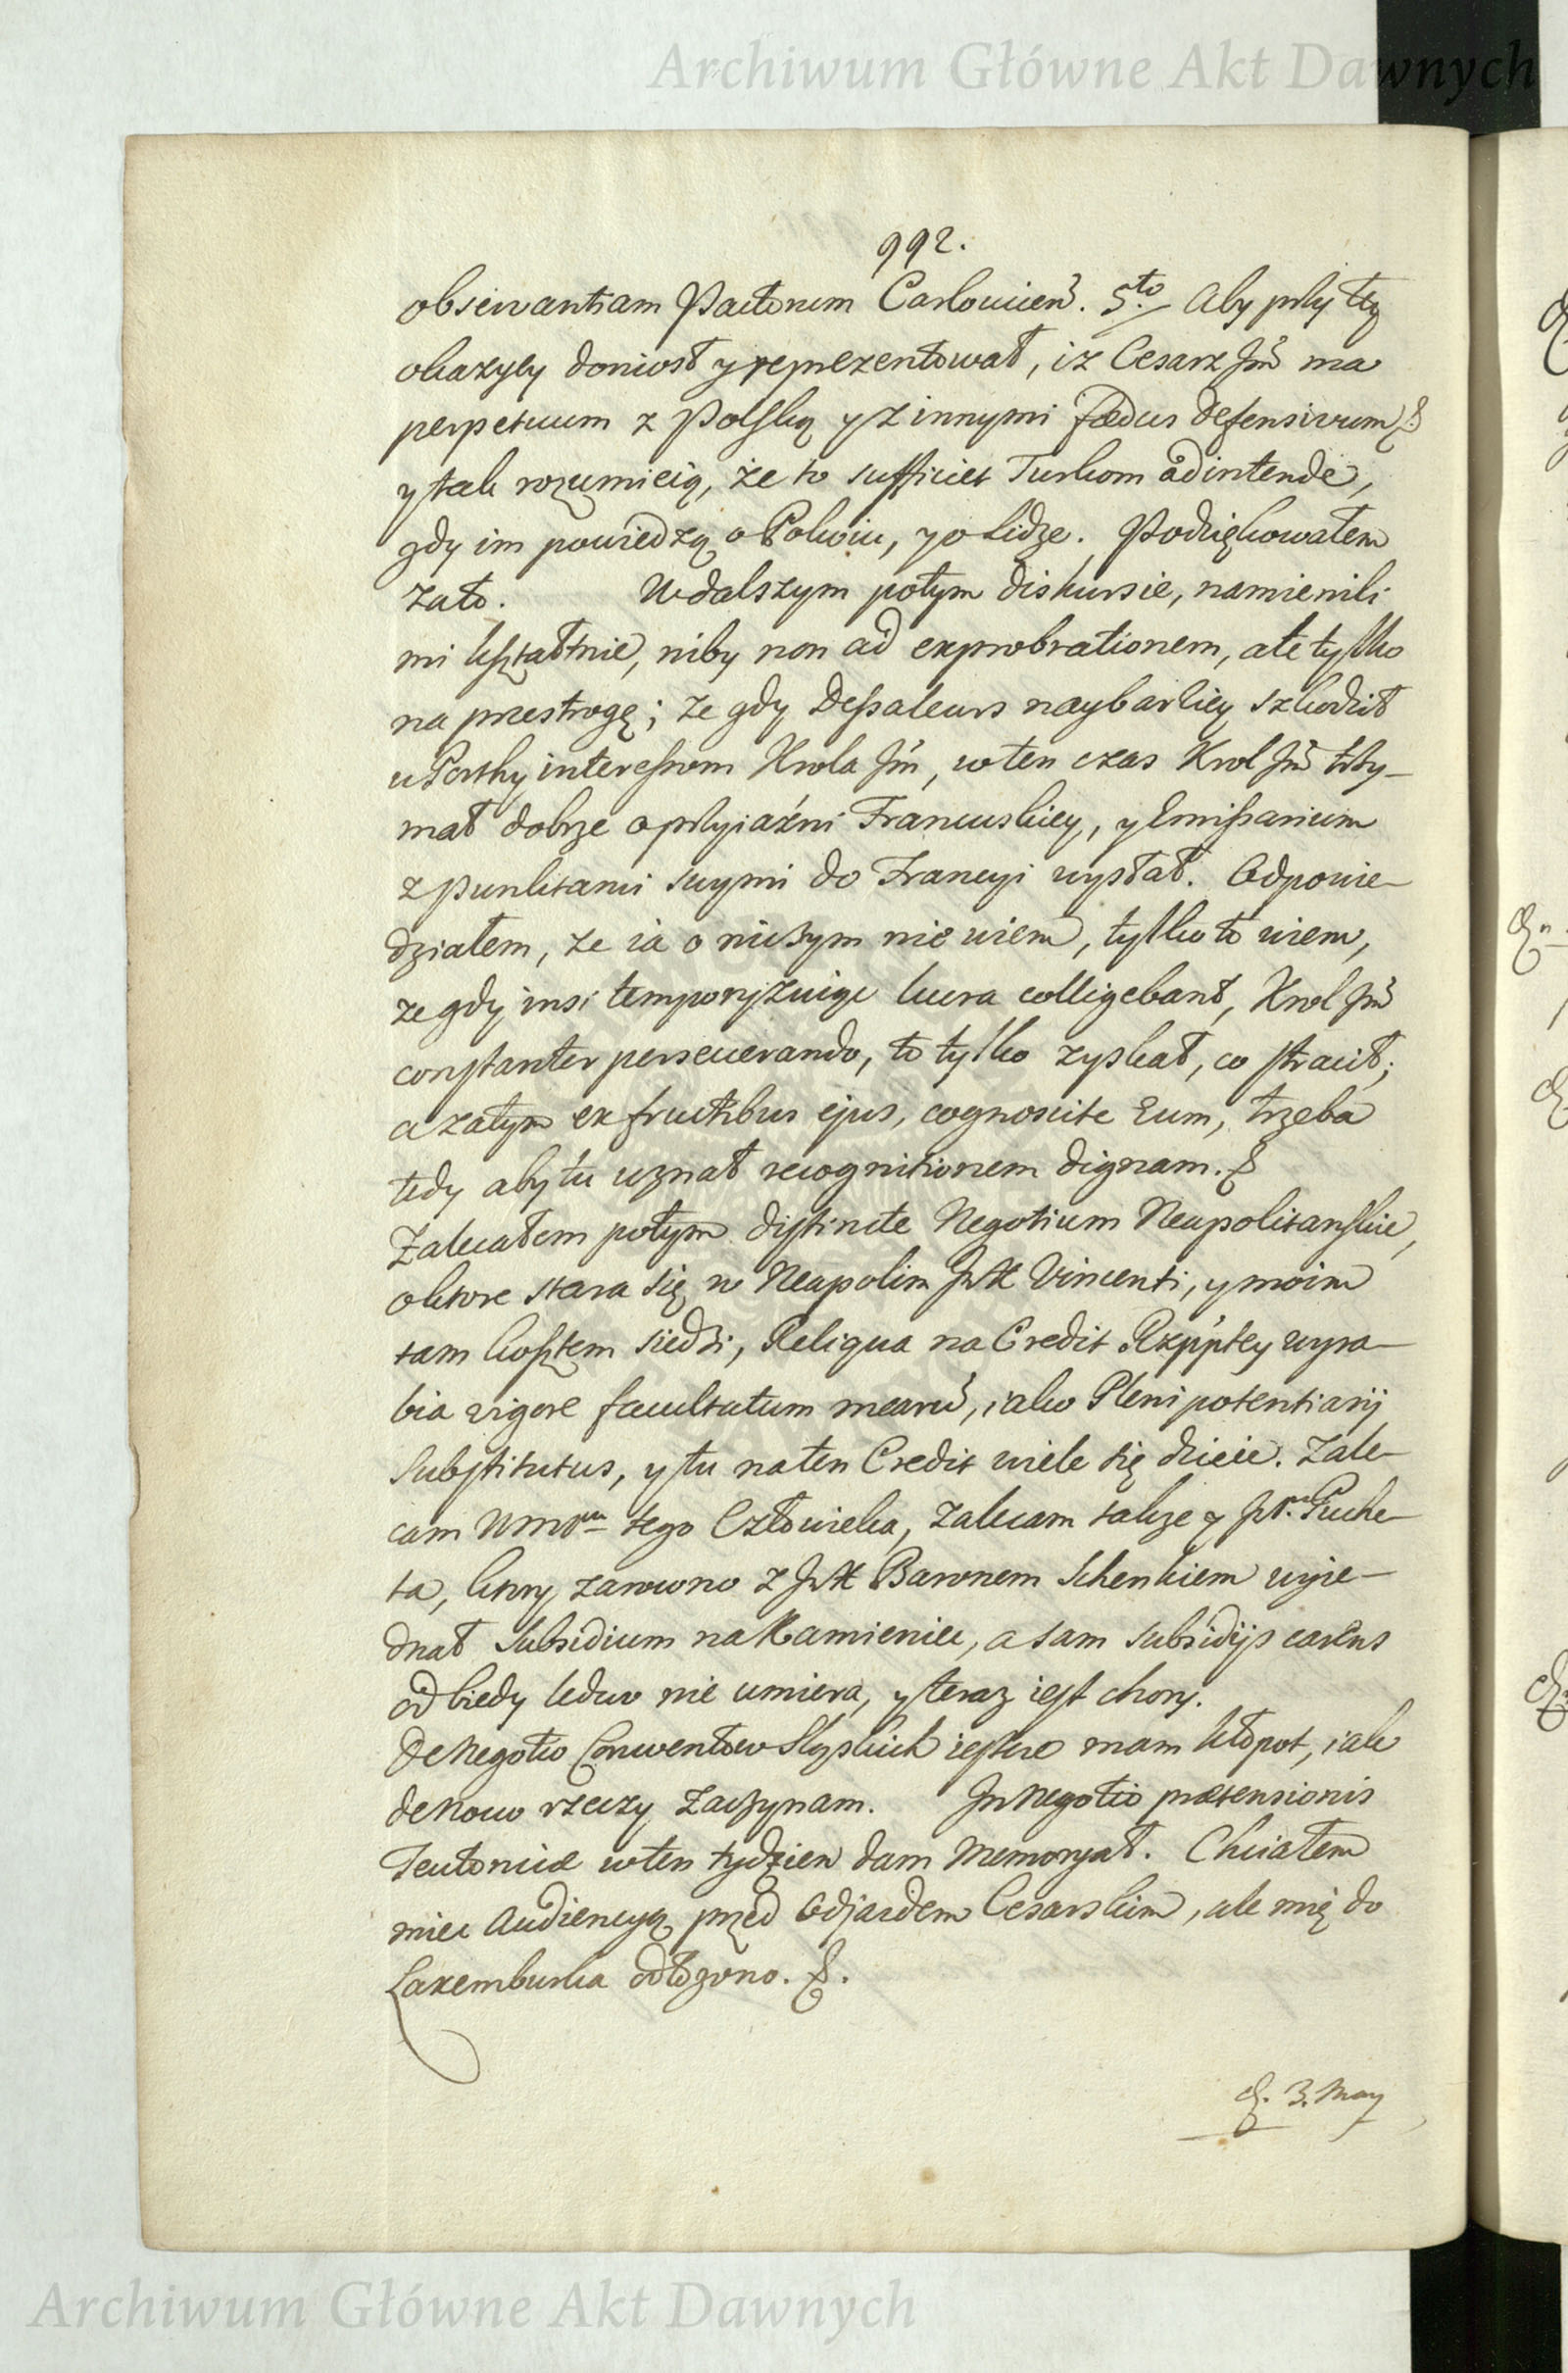 Archiwum Główne Akt Dawnych
992.
observantiam Pactorum Carlovicen. 5to Aby przy tey
okazyey doniosł y reprezentował, iz Cesarz Jm ma
perpetuum z Polską y z innymi fœdus defensivum &
y tak rozumieią, że to sufficiet Turkom ad intende,
gdy im powiedzą o Pokoiu, y o Lidze. Podziękowałem
zato. W dalszym potym diskursie, namienili
mi kształtnie, niby non ad exprobrationem, ale tylko
na przestrogę; ze gdy Dessaleurs naybarziey szkodził
u Porthy interessom Krola Jm, w ten czas Krol Jm trzy-
mał dobrze o przyiaźni Francuskiey, y Emissarium
z punktami swymi do Francyi wysłał. Odpowie-
działem, ze ia o niczym nie wiem, tylko to wiem,
ze gdy insi temporyzuiąc lucra colligebant, Krol Jm
constanter perseverando, to tylko zyskał, co stracił;
a zatym ex fructibus ejus, cognoscite Eum, trzeba
tedy aby tu uznał recognitionem dignam. &
Zalecałem potym distincte Negotium Neapolitanskie,
o ktore stara się w Neapolim JM Vincenti, y moim
tam kosztem siedzi, Reliqua na Credit Rzpptey wyra-
bia vigore facultatum mearu, iako Plenipotentiarij
Substitutus, y tu na ten Credit wiele się dzieie. Zale-
cam WMPu tego Człowieka, zalecam takze y JP. Puche-
ta, ktory zarowno z JM Baronem Schenkiem wyie-
dnał Subsidium na Kamieniec, a sam subsidijs carens
od biedy ledwo nie umiera, y teraz iest chory.
De Negotio Conventow Slyskich ieszcze mam kłopot, iak
de novo rzeczy zaczynam. In Negotio prætensionis
Teutonicæ w ten tydzien dam Memoryał. Chciałem
miec Audiencyą przed Odjazdem Cesarskim, ale mię do
Laxemburka odłozono. &.
&. 3. May
Archiwum Główne Akt Dawnych